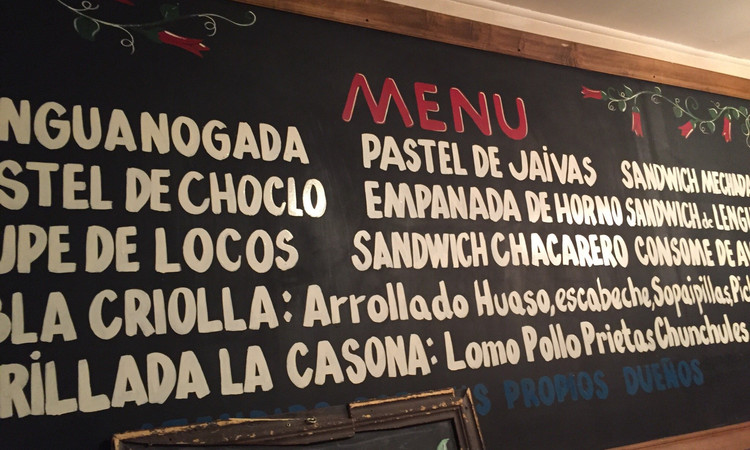 MENU
NGUANOGADA PASTEL DE JAIVAS SANDWICH MECHADA
STEL DE CHOCLO EMPANADA DE HORNO SANDWICH de LENG
UPE DE LOCOS SANDWICH CHACARERO CONSOME DE AV
BLA CRIOLLA: Arrollado Huaso, escabeche, Sopaipillas, Pic
RILLADA LA CASONA: Lomo Pollo Prietas Chunchules
PROPIOS DUEÑOS